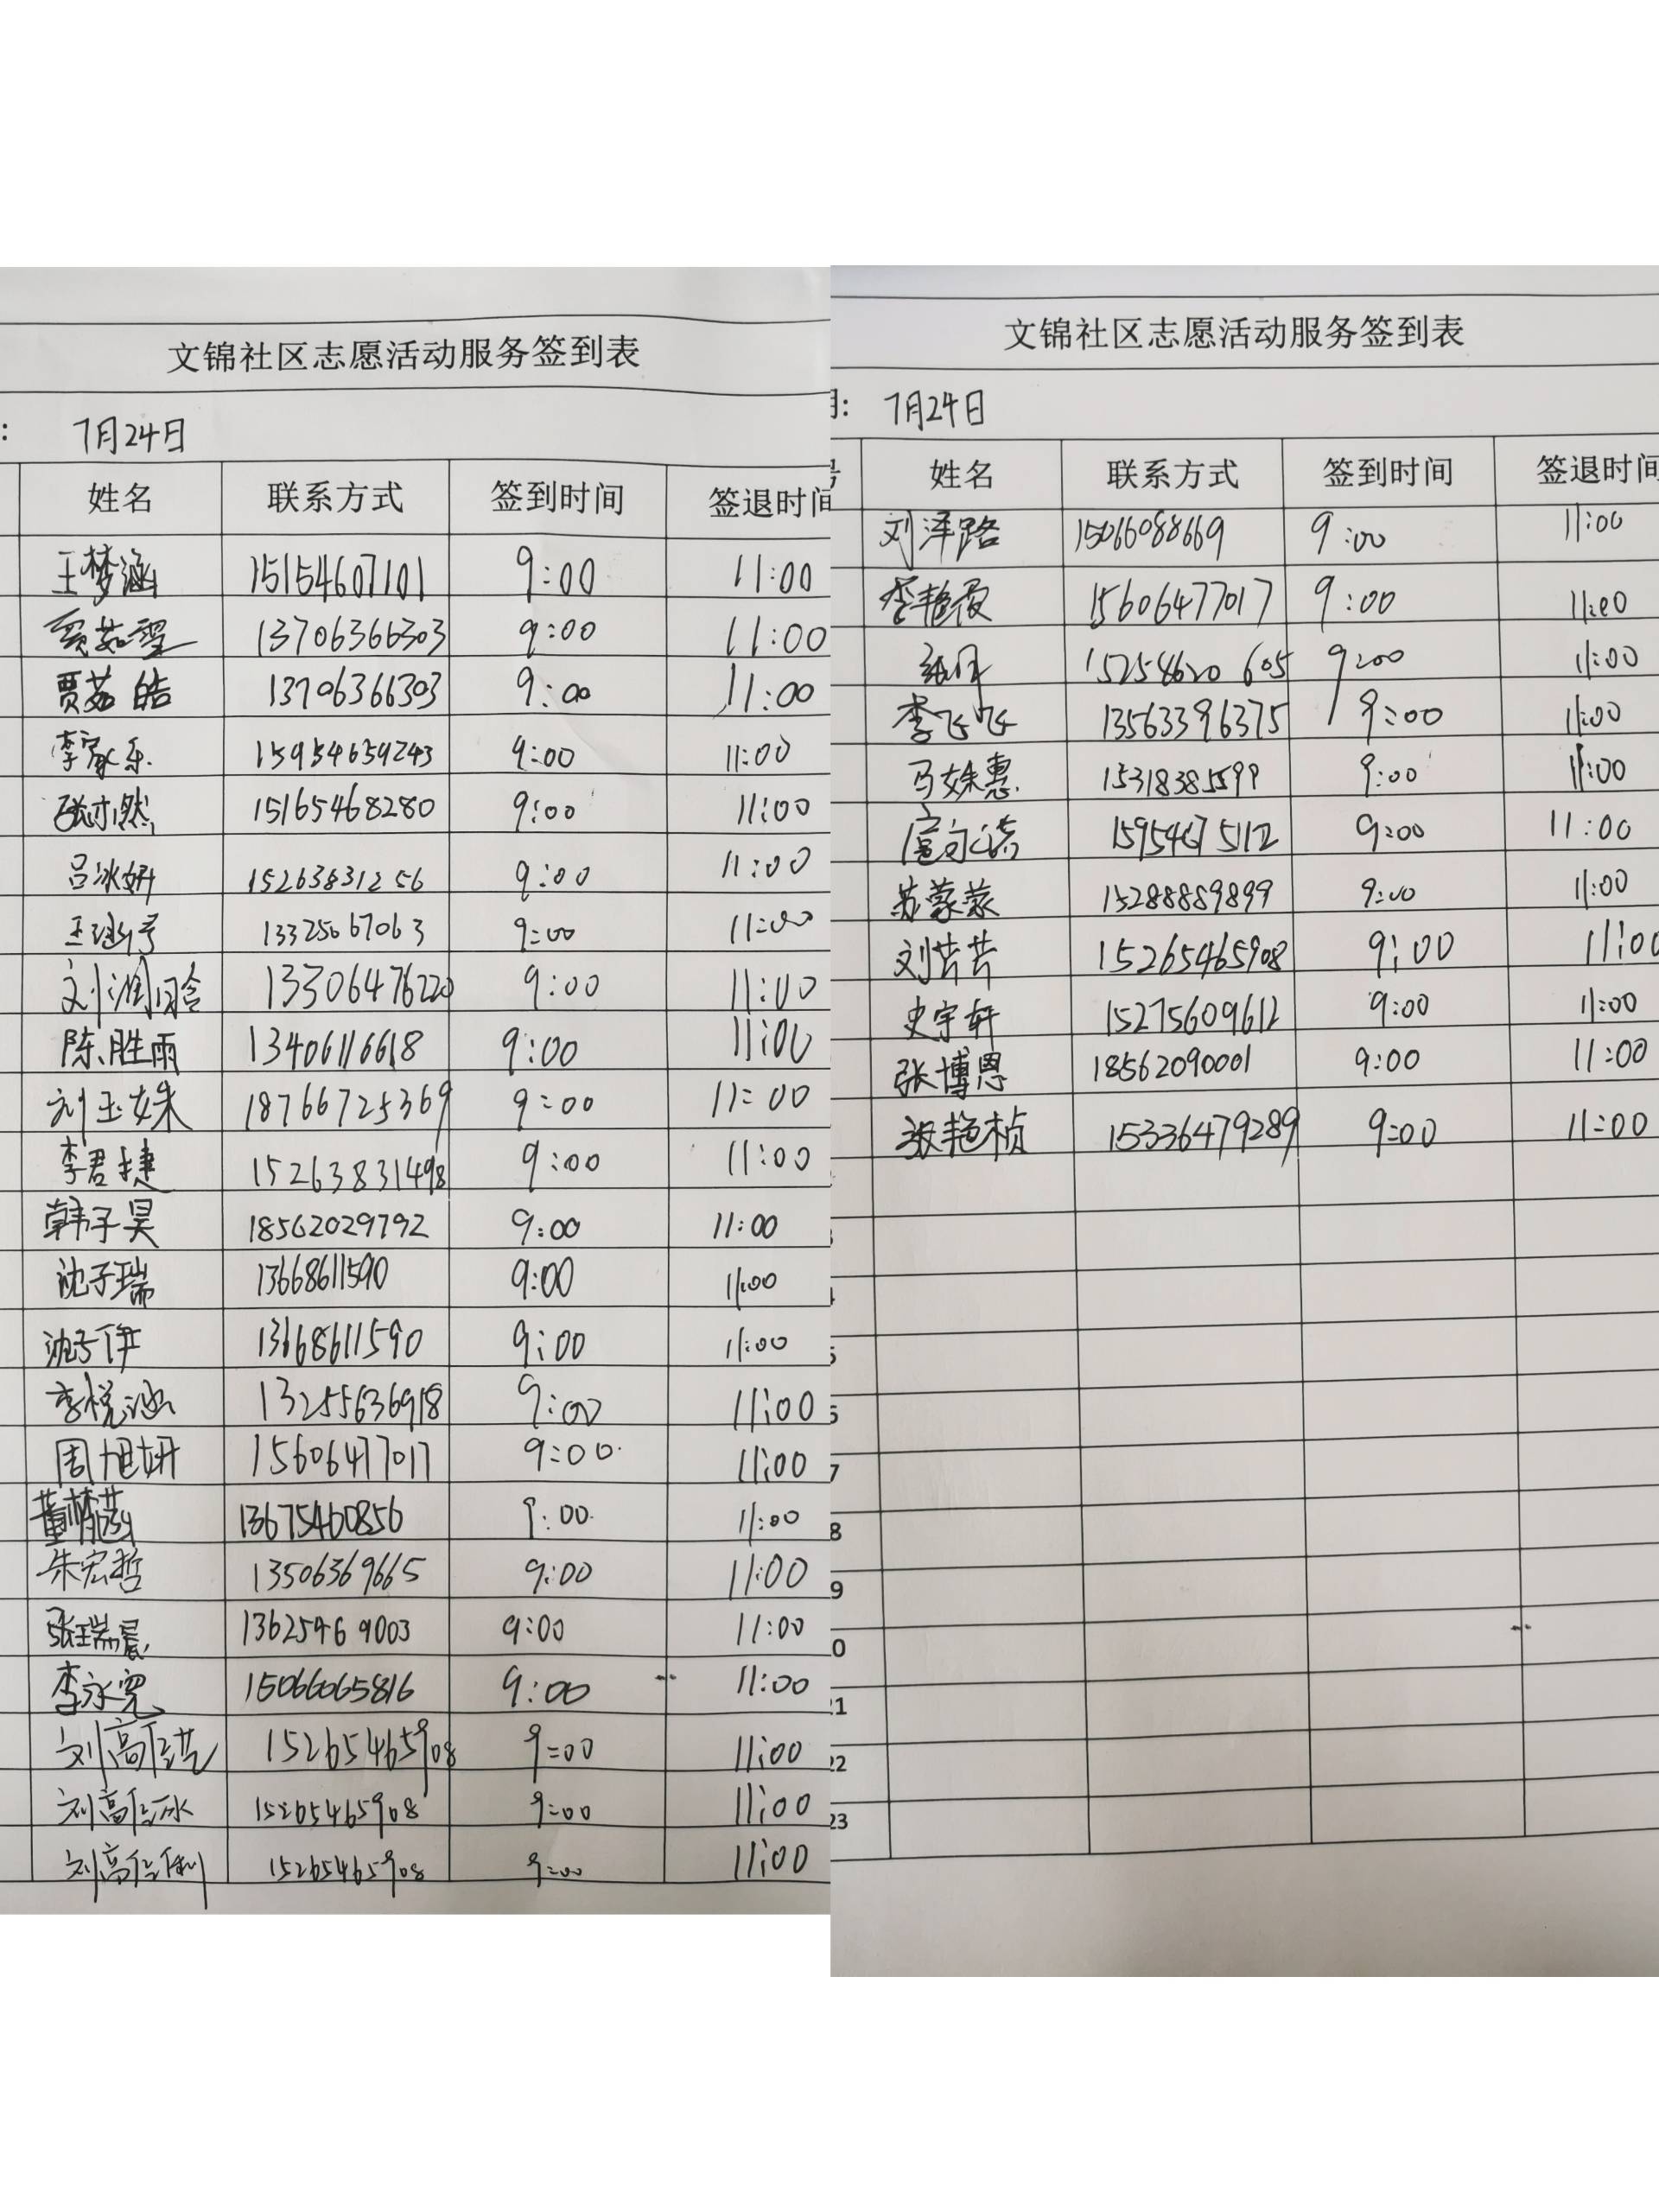 文锦社区志愿活动服务签到表
: 7月24日
姓名 联系方式 签到时间 签退时间
王梦涵 15154607101 9:00 11:00
贾茹理 13706366303 9:00 11:00
贾茹皓 13706366303 9:00 11:00
李家乐 15954659243 9:00 11:00
15165468280 9:00 11:00
吕冰妍 15263831256 9:00 11:00
13325067063 9:00 11:00
刘润晗 13306476220 9:00 11:00
陈胜雨 13406116618 9:00 11:00
刘玉姝 18766725369 9:00 11:00
李君捷 15263831498 9:00 11:00
韩子昊 18562029792 9:00 11:00
沈子瑞 13668611590 9:00 11:00
沈子伊 13668611590 9:00 11:00
李悦涵 13255636918 9:00 11:00
周旭妍 15606477017 9:00 11:00
董 13675460856 9:00 11:00
朱宏哲 13506369665 9:00 11:00
张瑞晨 13625469003 9:00 11:00
李永宽 15066065816 9:00 11:00
刘高任艺 15265465908 9:00 11:00
刘高任冰 15265465908 9:00 11:00
刘高任利 15265465908 9:00 11:00
文锦社区志愿活动服务签到表
期: 7月24日
号 姓名 联系方式 签到时间 签退时间
刘泽路 15066088669 9:00 11:00
李艳霞 15606477017 9:00 11:00
15254620605 9:00 11:00
李飞飞 13563396375 9:00 11:00
马姝惠 15318385599 9:00 11:00
扈永洪 15954675112 9:00 11:00
苏蒙蒙 15288889899 9:00 11:00
刘芳芳 15265465908 9:00 11:00
史宇轩 15275609612 9:00 11:00
张博恩 18562090001 9:00 11:00
张艳桢 15336479289 9:00 11:00
3
4
5
6
7
8
9
0
21
22
23